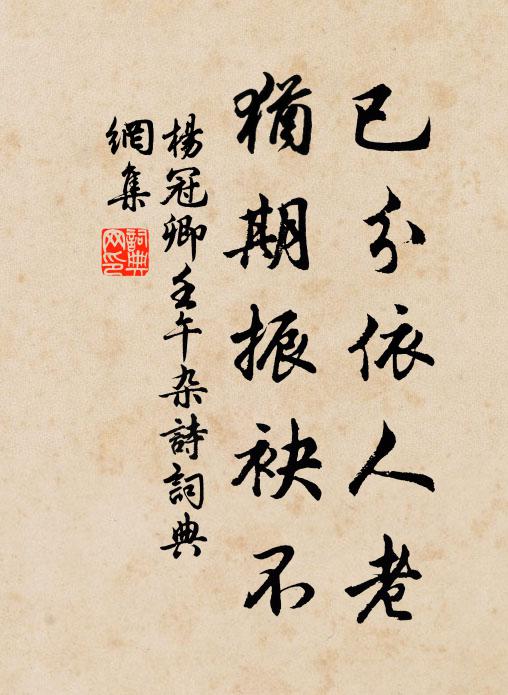 已分依人老
猶期振袂不
楊冠卿壬午杂詩詞典
網集
詞典
网印